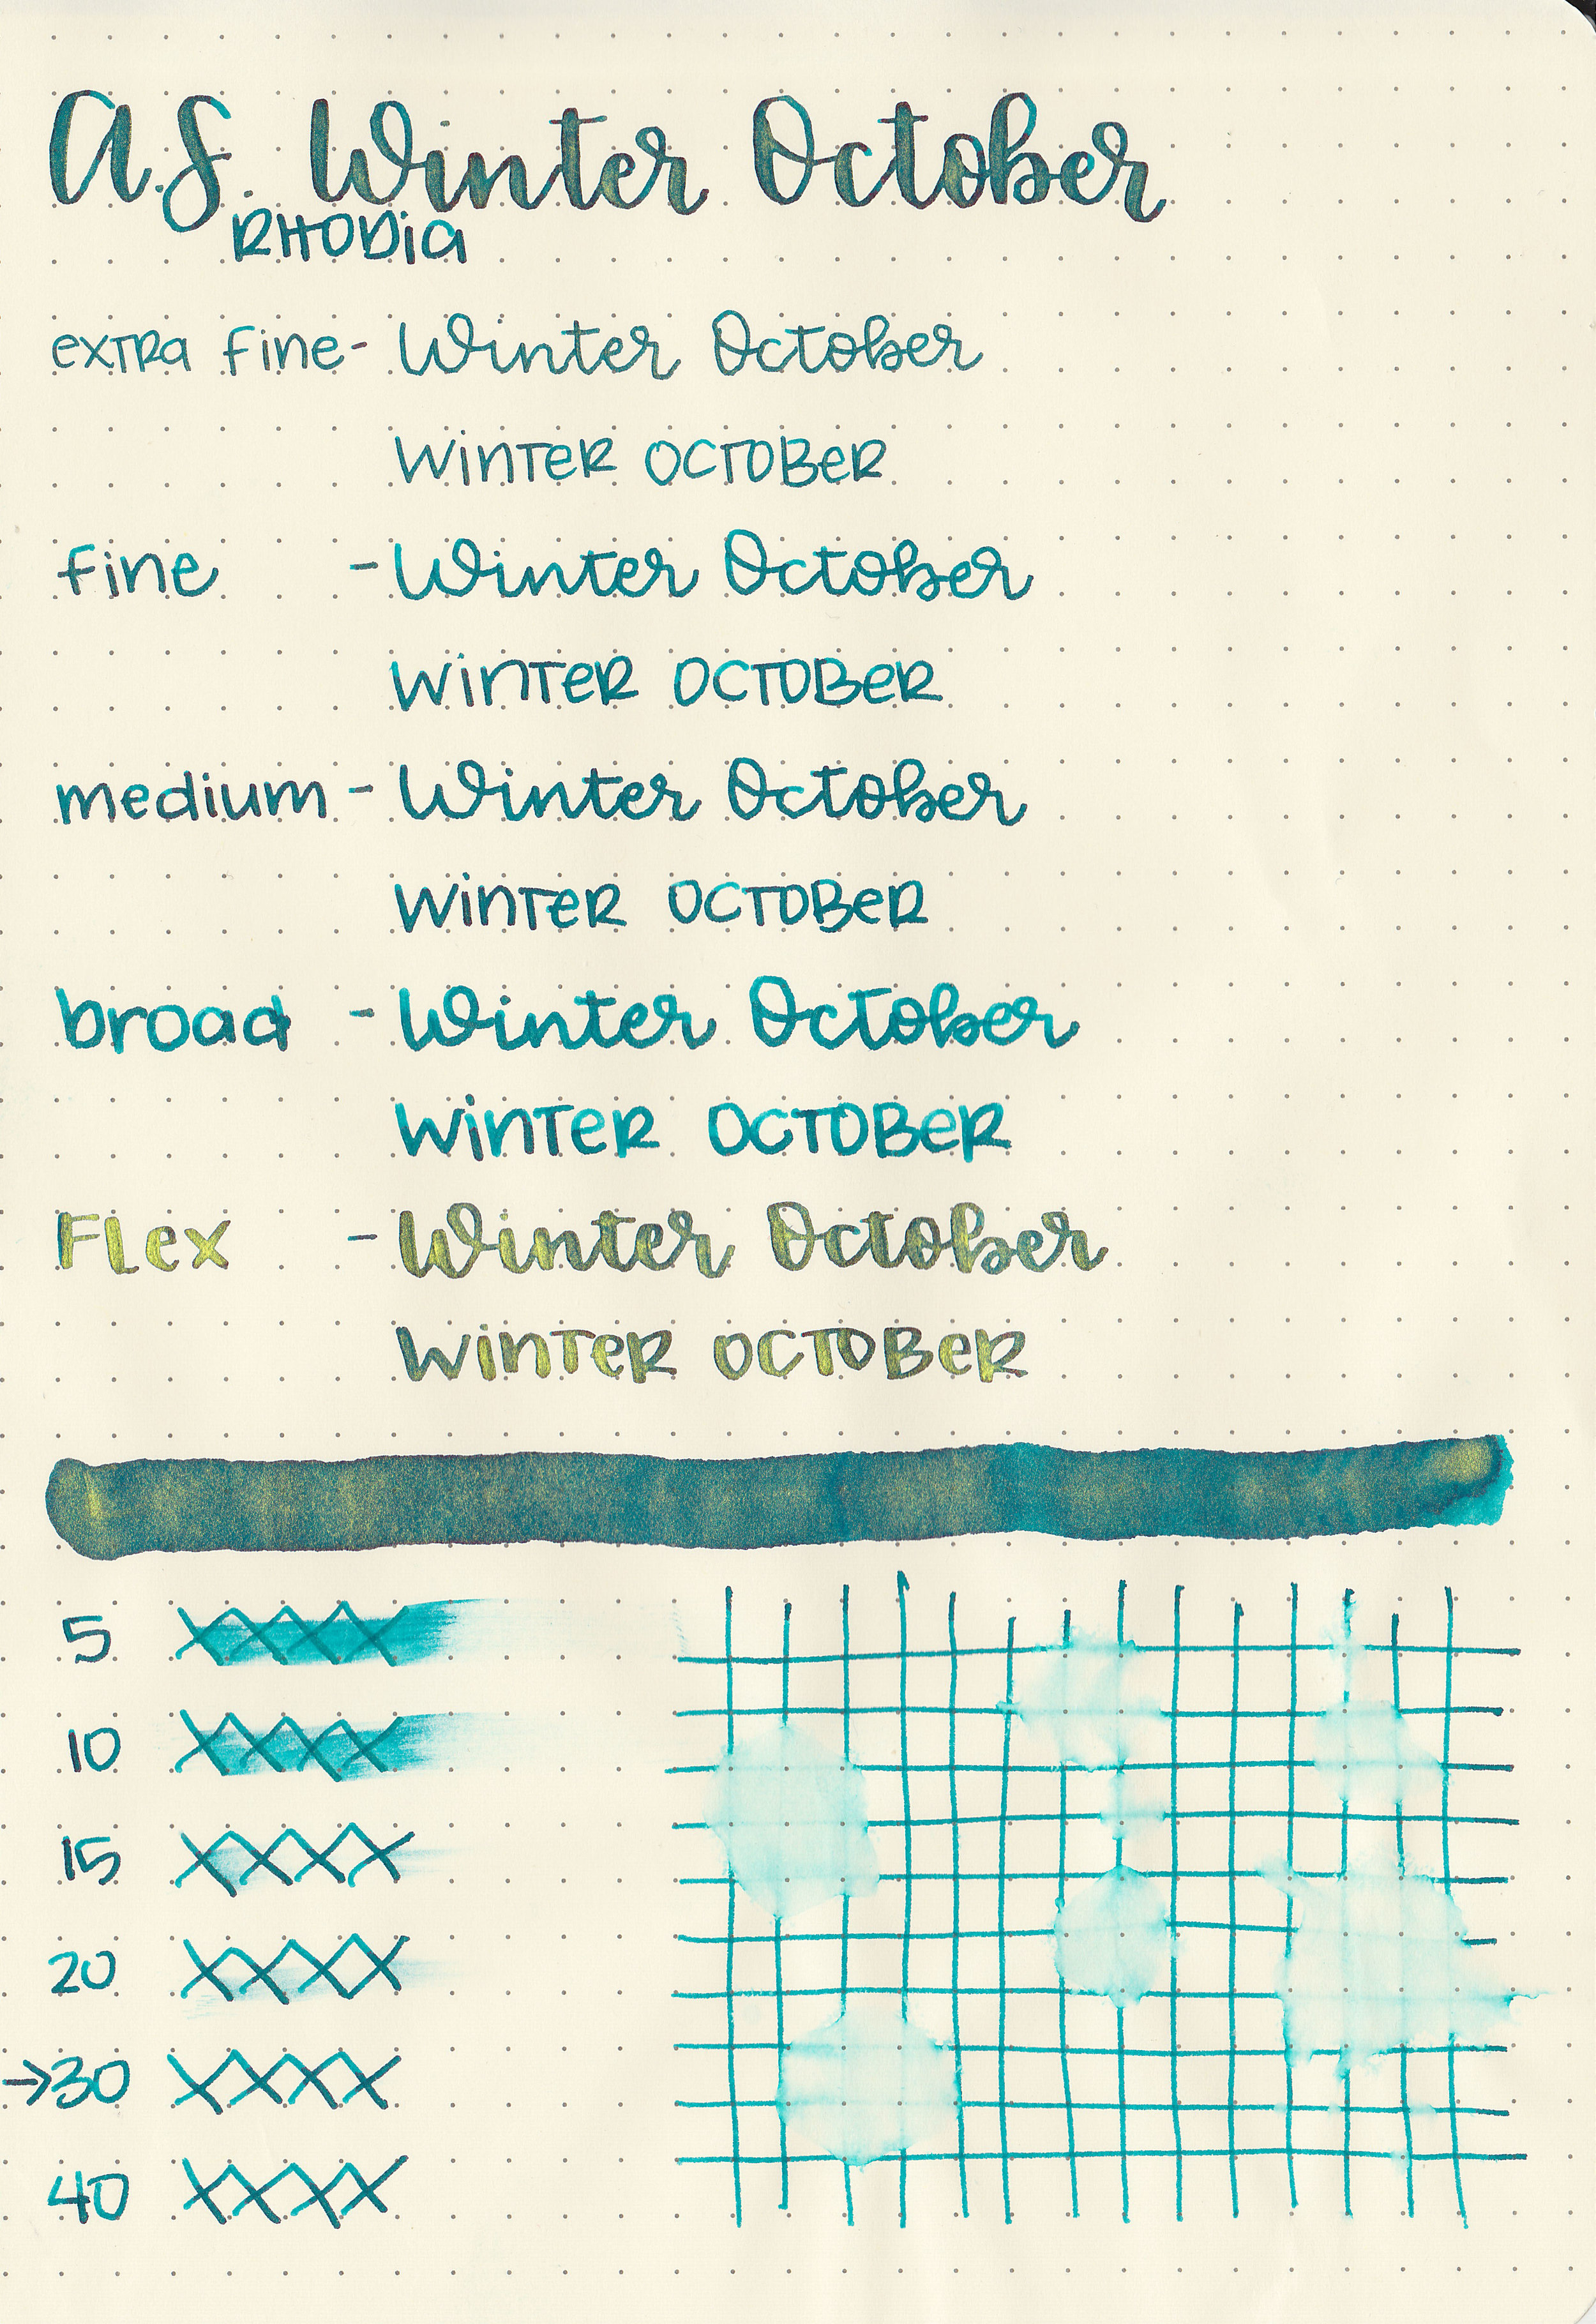 A.S. Winter October
RHODiA
exTRa fine- Winter October
WinTeR OCTOBeR
fine - Winter October
WinTeR OCTOBeR
medium - Winter October
WinTeR OCTOBeR
broad - Winter October
WinTeR OCTOBeR
FLex - Winter October
WinTeR OCTOBeR
5 XXXX
10 XXXX
15 XXXX
20 XXXX
→30 XXXX
40 XXXX